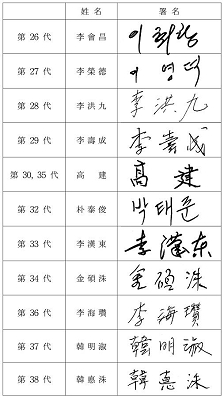 姓 名 署 名
第 26 代 李會昌 이회창
第 27 代 李榮德 이영덕
第 28 代 李洪九 李洪九
第 29 代 李壽成 李壽成
第 30, 35 代 高 建 高建
第 32 代 朴泰俊 박태준
第 33 代 李漢東 李漢东
第 34 代 金碩洙 金碩洙
第 36 代 李海瓚 李海瓚
第 37 代 韓明淑 韓明淑
第 38 代 韓悳洙 韓悳洙